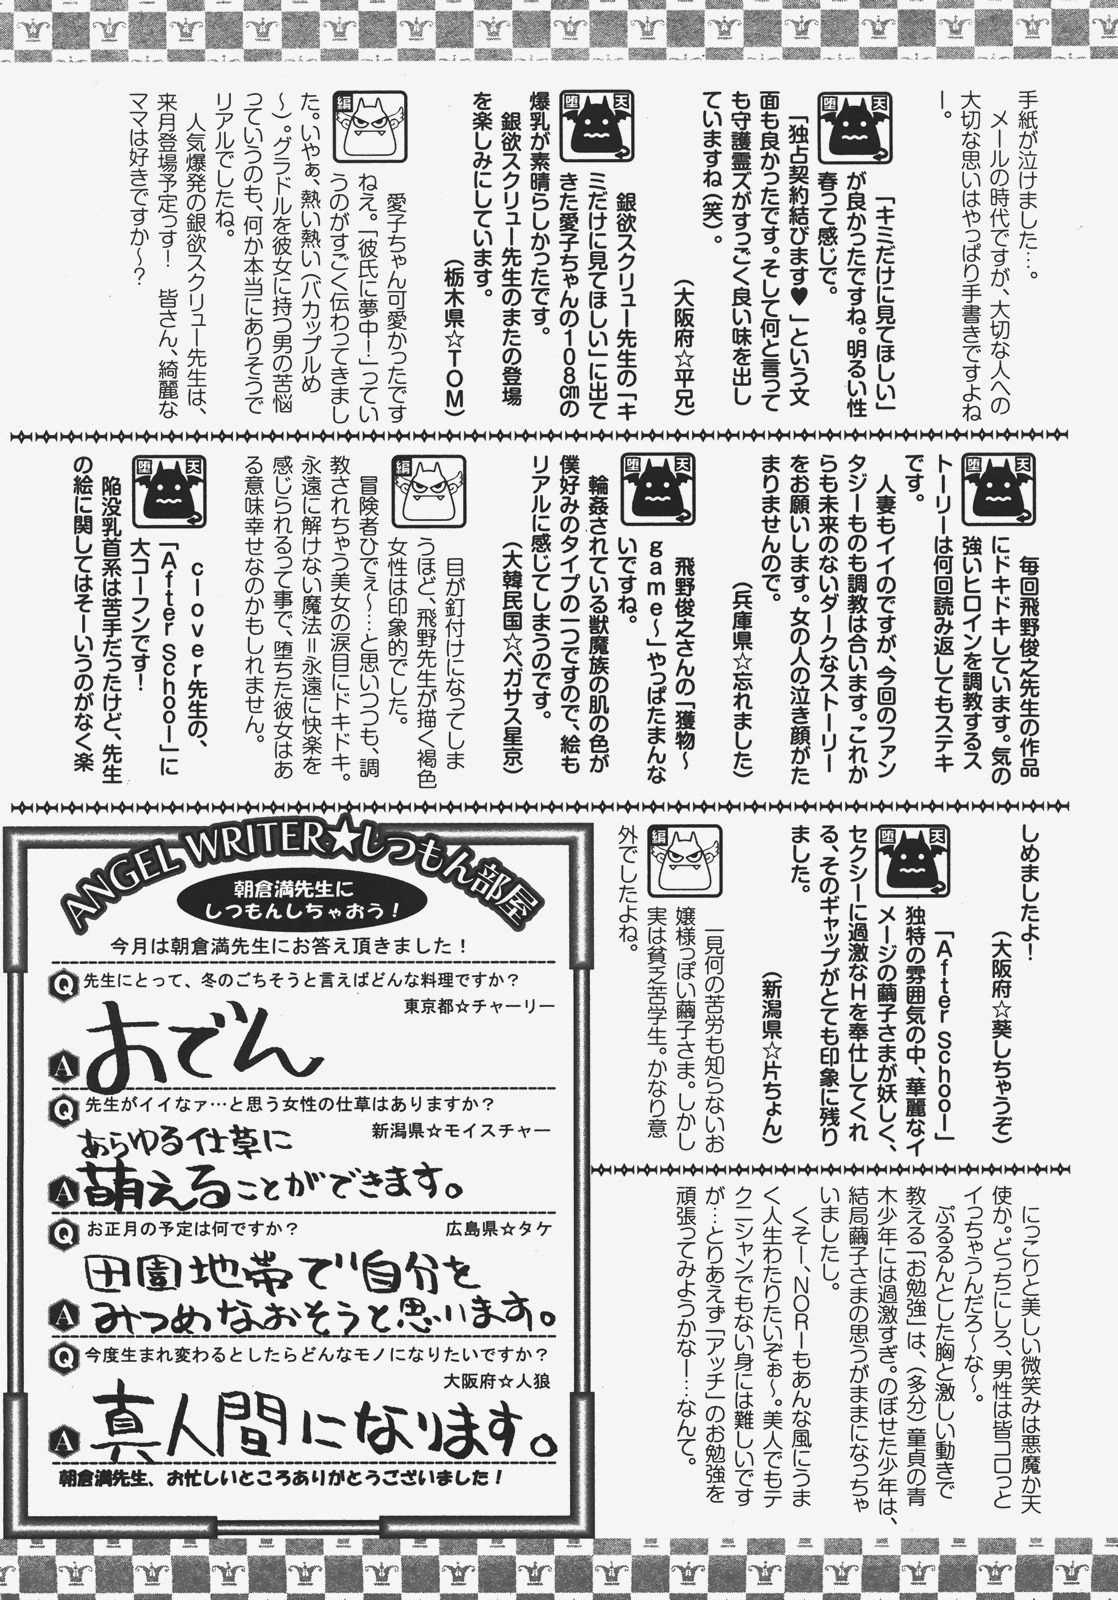 手紙が泣けました…。
メールの時代ですが、大切な人への
大切な思いはやっぱり手書きですよね
ー。
堕 天
「キミだけに見てほしい」
が良かったですね。明るい性
春って感じで。
「独占契約結びます♥」という文
面も良かったです。そして何と言って
も守護霊ズがすっごく良い味を出し
ていますね（笑）。
（大阪府☆平兄）
堕 天
銀欲スクリュー先生の「キ
ミだけに見てほしい」に出て
きた愛子ちゃんの108㎝の
爆乳が素晴らしかったです。
銀欲スクリュー先生のまたの登場
を楽しみにしています。
（栃木県☆TOM）
編
愛子ちゃん可愛かったです
ねえ。「彼氏に夢中！」ってい
うのがすごく伝わってきまし
た。いやぁ、熱い熱い（バカップルめ
〜）。グラドルを彼女に持つ男の苦悩
っていうのも、何か本当にありそうで
リアルでしたね。
人気爆発の銀欲スクリュー先生は、
来月登場予定っす！　皆さん、綺麗な
ママは好きですか〜？
堕 天
毎回飛野俊之先生の作品
にドキドキしています。気の
強いヒロインを調教するス
トーリーは何回読み返してもステキ
です。
人妻もイイのですが、今回のファン
タジーものも調教は合います。これか
らも未来のないダークなストーリー
をお願いします。女の人の泣き顔がた
まりませんので。
（兵庫県☆忘れました）
堕 天
飛野俊之さんの「獲物〜
game〜」やっぱたまんな
いですね。
輪姦されている獣魔族の肌の色が
僕好みのタイプの一つですので、絵も
リアルに感じてしまうのです。
（大韓民国☆ペガサス星京）
編
目が釘付けになってしま
うほど、飛野先生が描く褐色
女性は印象的でした。
冒険者ひでぇ〜…と思いつつも、調
教されちゃう美女の涙目にドキドキ。
永遠に解けない魔法＝永遠に快楽を
感じられるって事で、堕ちた彼女はあ
る意味幸せなのかもしれません。
堕 天
clover先生の、
「After School」に
大コーフンです！
陥没乳首系は苦手だったけど、先生
の絵に関してはそーいうのがなく楽
しめましたよ！
（大阪府☆葵しちゃうぞ）
堕 天
「After School」
独特の雰囲気の中、華麗なイ
メージの繭子さまが妖しく、
セクシーに過激なHを奉仕してくれ
る、そのギャップがとても印象に残り
ました。
（新潟県☆片ちょん）
編
一見何の苦労も知らないお
嬢様っぽい繭子さま。しかし
実は貧乏苦学生。かなり意
外でしたよね。
にっこりと美しい微笑みは悪魔か天
使か。どっちにしろ、男性は皆コロっと
イっちゃうんだろ〜な〜。
ぷるるんとした胸と激しい動きで
教える「お勉強」は、（多分）童貞の青
木少年には過激すぎ。のぼせた少年は、
結局繭子さまの思うがままになっちゃ
いましたし。
くそー、NORーもあんな風にうま
く人生わたりたいぞぉ〜。美人でもテ
クニシャンでもない身には難しいです
が…とりあえず「アッチ」のお勉強を
頑張ってみようかなー…なんて。
ANGEL WRITER★しつもん部屋
朝倉満先生に
しつもんしちゃおう！
今月は朝倉満先生にお答え頂きました！
Q 先生にとって、冬のごちそうと言えばどんな料理ですか？
東京都☆チャーリー
A おでん
Q 先生がイイなァ…と思う女性の仕草はありますか？
新潟県☆モイスチャー
あらゆる仕草に
A 萌えることができます。
Q お正月の予定は何ですか？　広島県☆タケ
田園地帯で自分を
A みつめなおそうと思います。
Q 今度生まれ変わるとしたらどんなモノになりたいですか？
大阪府☆人狼
A 真人間になります。
朝倉満先生、お忙しいところありがとうございました！